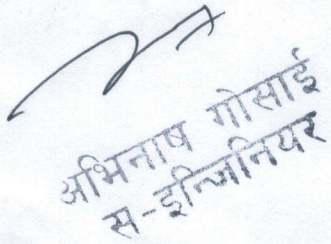 अभिनाष गोसाई
स-इन्जिनियर